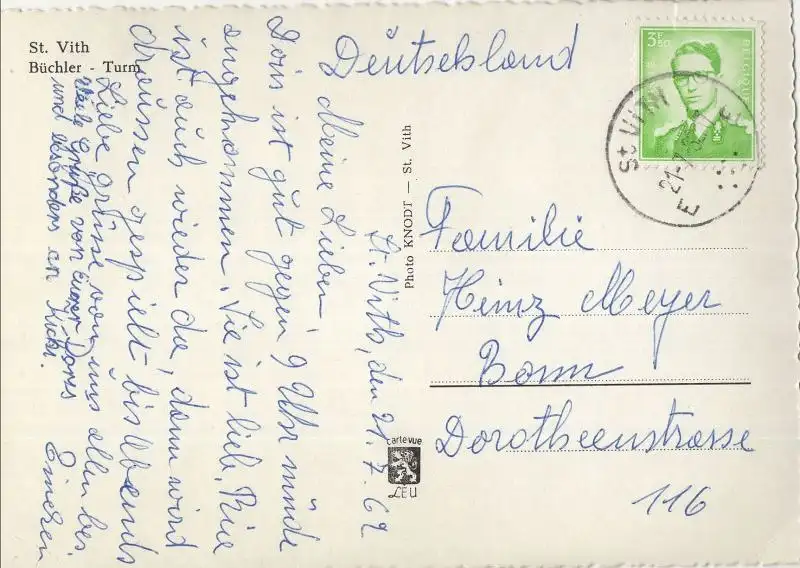 St. Vith
Büchler - Turm
St. Vith, den 21.7.62
Meine Lieben,
Doris ist gut gegen 9 Uhr müde
angekommen. Sie ist lieb.
ist auch wieder da, dann wird
draussen gespielt bis Abends
Liebe grüsse von uns allen bes.
Viele Grüße von eurer Doris
und besonders an
Photo KNODT — St. Vith
carte vue
LEU
Deutschland
3F50
BELGIQUE
St. VITH
21-7-62
E
Familie
Heinz Meyer
Bonn
Dorotheenstrasse
116